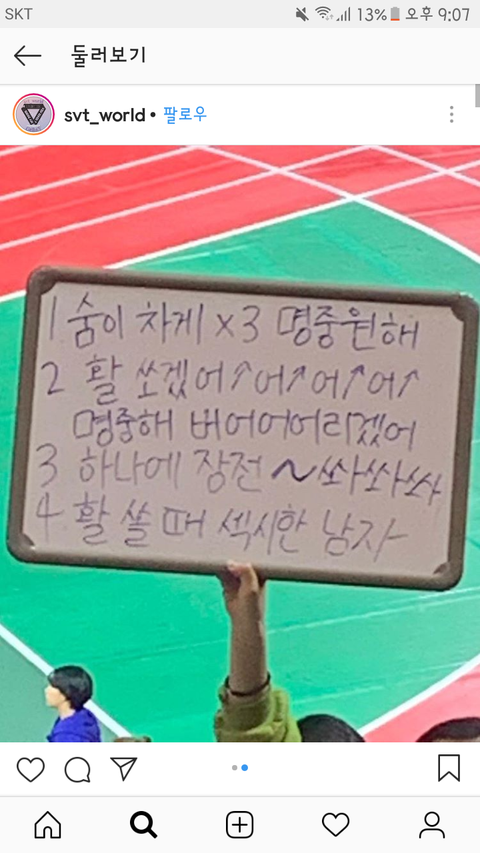 SKT 13% 오후 9:07
둘러보기
svt_world • 팔로우
1 숨이 차게 x3 명중원해
2 활 쏘겠어↗어↗어↗어↗
명중해 버어어어리겠어
3 하나에 장전 ~ 쏴쏴쏴
4 활 쏠 때 섹시한 남자